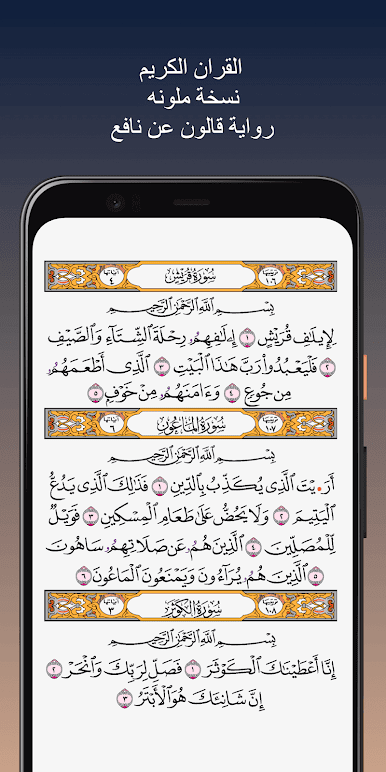 القران الكريم
نسخة ملونه
رواية قالون عن نافع
ترتيبها ١٠٦ سُورَةُ قُرَيْشٍ آياتها ٤
بِسْمِ اِللَّهِ اِلرَّحْمَٰنِ اِلرَّحِيمِ
لِإِيلَٰفِ قُرَيْشٍ ١ إِۦلَٰفِهِمُۥ رِحْلَةَ اَلشِّتَآءِ وَالصَّيْفِ
٢ فَلْيَعْبُدُواْ رَبَّ هَٰذَا اَلْبَيْتِ ٣ اِلَّذِے أَطْعَمَهُمُۥ
مِن جُوعٍ ٤ وَءَامَنَهُمُۥ مِنْ خَوْفٍ ٥
ترتيبها ١٠٧ سُورَةُ اَلْمَاعُونِ آياتها ٦
بِسْمِ اِللَّهِ اِلرَّحْمَٰنِ اِلرَّحِيمِ
أَرَ.يْتَ اَلَّذِے يُكَذِّبُ بِالدِّينِ ١ فَذَٰلِكَ اَلَّذِے يَدُعُّ
اُلْيَتِيمَ ٢ وَلَا يَحُضُّ عَلَىٰ طَعَامِ اِلْمِسْكِينِ ٣ فَوَيْلٌ
لِّلْمُصَلِّينَ ٤ اَلَّذِينَ هُمُۥ عَن صَلَاتِهِمُۥ سَاهُونَ
٥ اَلَّذِينَ هُمُۥ يُرَآءُونَ وَيَمْنَعُونَ اَلْمَاعُونَ ٦
ترتيبها ١٠٨ سُورَةُ اَلْكَوْثَرِ آياتها ٣
بِسْمِ اِللَّهِ اِلرَّحْمَٰنِ اِلرَّحِيمِ
إِنَّا أَعْطَيْنَٰكَ اَلْكَوْثَرَ ١ فَصَلِّ لِرَبِّكَ وَانْحَرْ ٢
إِنَّ شَانِئَكَ هُوَ اَلْأَبْتَرُ ٣